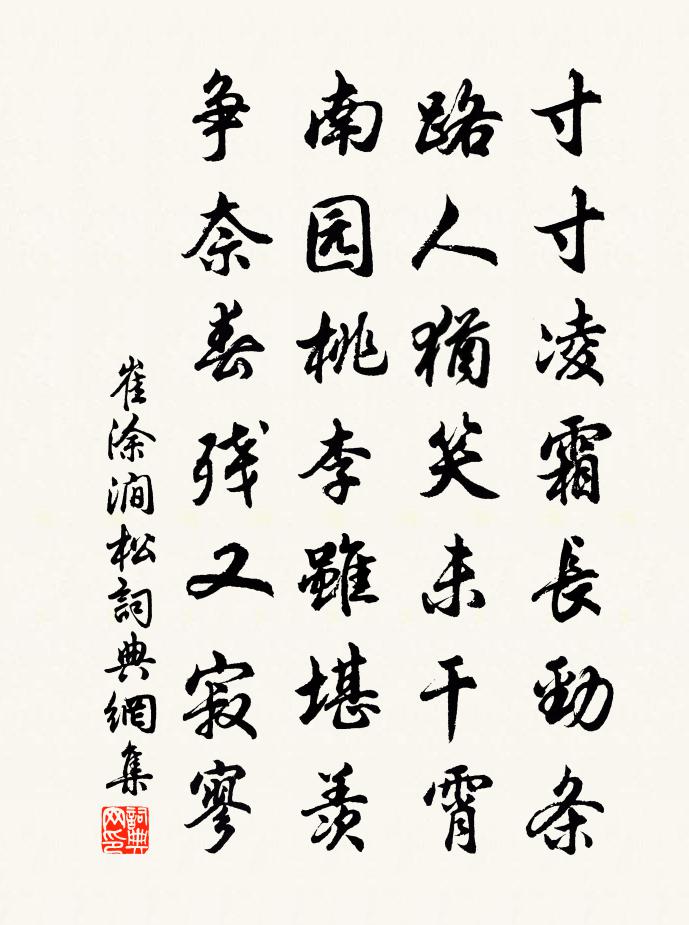 寸寸凌霜長勁条
路人猶笑未干霄
南园桃李雖堪羨
争奈春残又寂寥
崔涂澗松詞典網集
詞典网印